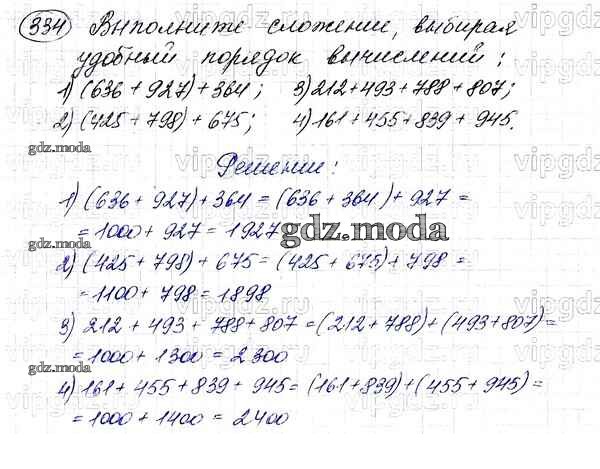 334 Выполните сложение, выбирая
удобный порядок вычислений:
1) (636 + 927) + 364; 3) 212 + 493 + 788 + 807;
2) (425 + 798) + 675; 4) 161 + 455 + 839 + 945.
gdz.moda
Решение:
1) (636 + 927) + 364 = (636 + 364) + 927 =
= 1000 + 927 = 1927
gdz.moda
gdz.moda
2) (425 + 798) + 675 = (425 + 675) + 798 =
= 1100 + 798 = 1898
3) 212 + 493 + 788 + 807 = (212 + 788) + (493 + 807) =
= 1000 + 1300 = 2300
gdz.moda
4) 161 + 455 + 839 + 945 = (161 + 839) + (455 + 945) =
= 1000 + 1400 = 2400